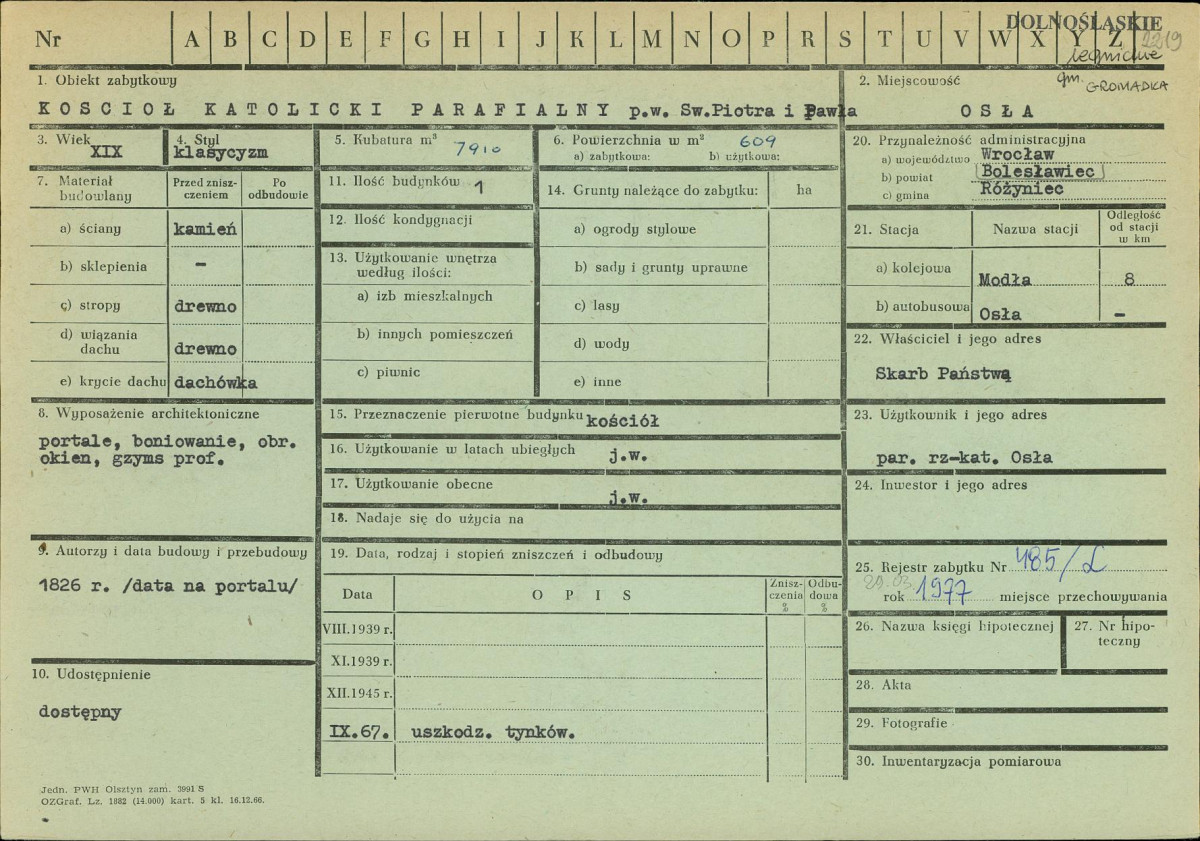 DOLNOŚLĄSKIE
Nr A B C D E F G H I J K L M N O P R S T U V W X Y Z 2219
legnickie
gm. GROMADKA
1. Obiekt zabytkowy
KOSCIOŁ KATOLICKI PARAFIALNY p.w. Sw.Piotra i Pawła
2. Miejscowość
OSŁA
3. Wiek
XIX
4. Styl
klasycyzm
5. Kubatura m³
7910
6. Powierzchnia w m²
609
a) zabytkowa: b) użytkowa:
7. Materiał budowlany
Przed zniszczeniem
Po odbudowie
a) ściany kamień
b) sklepienia –
c) stropy drewno
d) wiązania dachu drewno
e) krycie dachu dachówka
8. Wyposażenie architektoniczne
portale, boniowanie, obr.
okien, gzyms prof.
9. Autorzy i data budowy i przebudowy
1826 r. /data na portalu/
10. Udostępnienie
dostępny
11. Ilość budynków 1
12. Ilość kondygnacji
13. Użytkowanie wnętrza
według ilości:
a) izb mieszkalnych
b) innych pomieszczeń
c) piwnic
14. Grunty należące do zabytku: ha
a) ogrody stylowe
b) sady i grunty uprawne
c) lasy
d) wody
e) inne
15. Przeznaczenie pierwotne budynku kościół
16. Użytkowanie w latach ubiegłych j.w.
17. Użytkowanie obecne j.w.
18. Nadaje się do użycia na
19. Data, rodzaj i stopień zniszczeń i odbudowy
Data OPIS Zniszczenia % Odbudowa %
VIII.1939 r.
XI.1939 r.
XII.1945 r.
IX.67. uszkodz. tynków.
20. Przynależność administracyjna
a) województwo Wrocław
b) powiat Bolesławiec
c) gmina Różyniec
21. Stacja Nazwa stacji Odległość od stacji w km
a) kolejowa Modła 8
b) autobusowa Osła –
22. Właściciel i jego adres
Skarb Państwą
23. Użytkownik i jego adres
par. rz-kat. Osła
24. Inwestor i jego adres
25. Rejestr zabytku Nr 485/L
29.03.
rok 1977 miejsce przechowywania
26. Nazwa księgi hipotecznej
27. Nr hipoteczny
28. Akta
29. Fotografie
30. Inwentaryzacja pomiarowa
Jedn. PWH Olsztyn zam. 3991 S
OZGraf. Lz. 1882 (14.000) kart. 5 kl. 16.12.66.